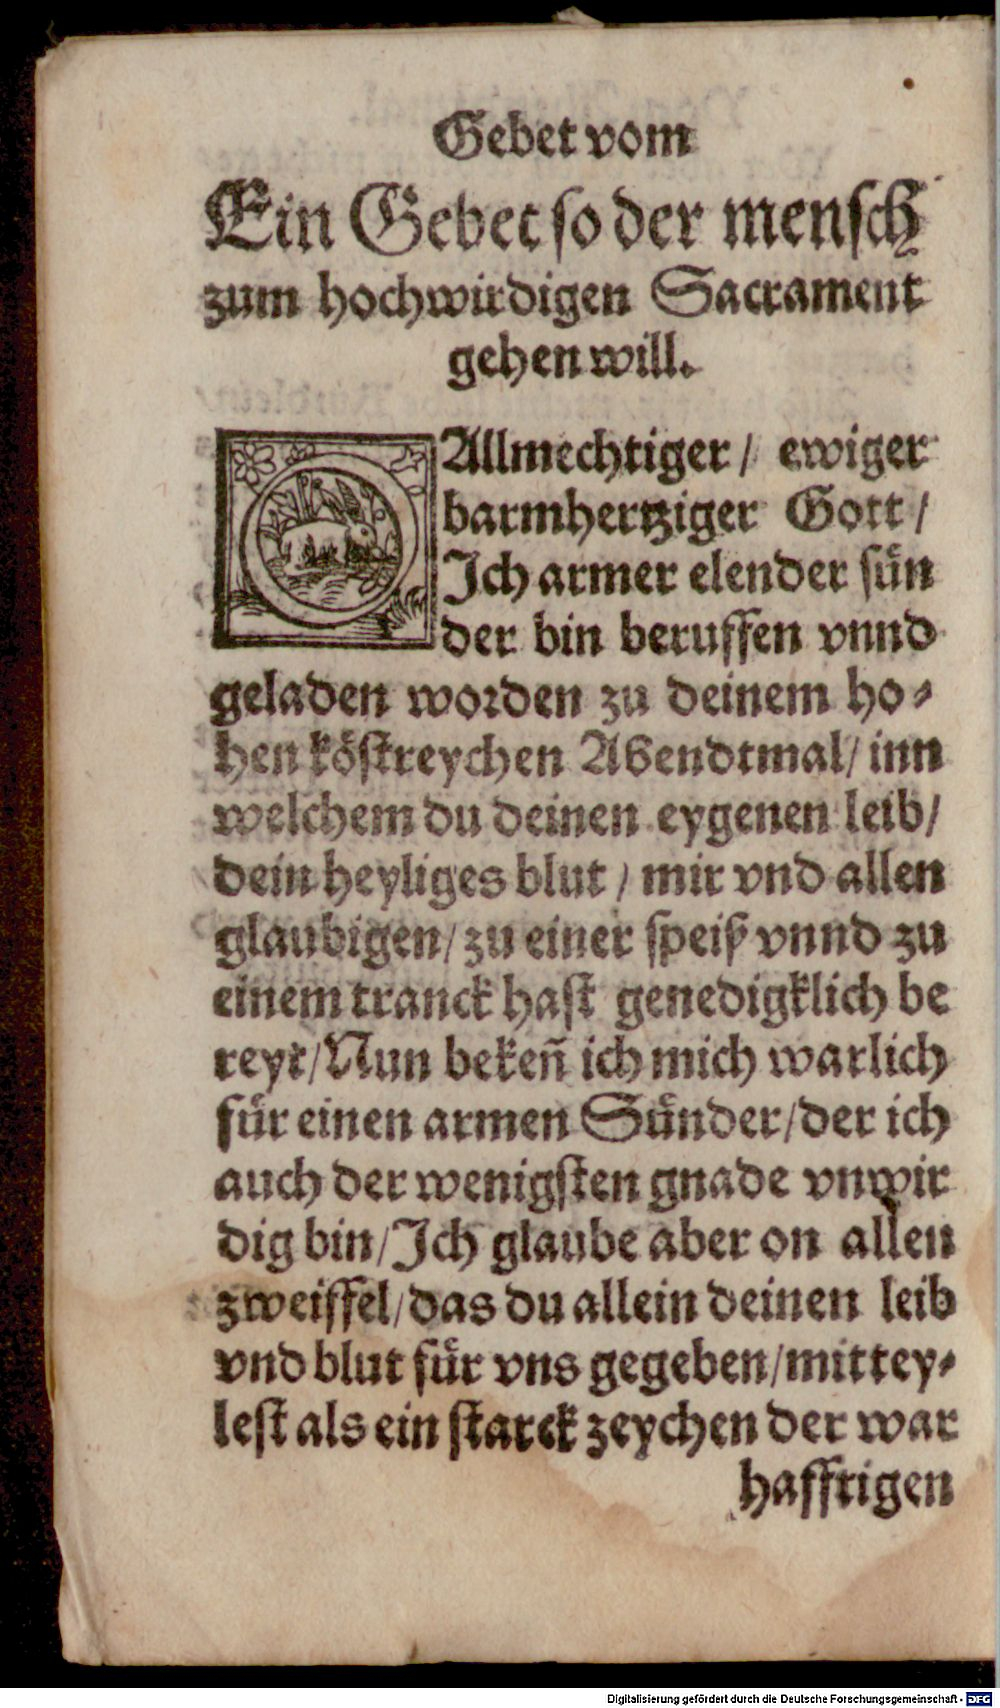 Gebet vom
Ein Gebet so der mensch
zum hochwirdigen Sacrament
gehen will.
O Allmechtiger / ewiger
barmhertziger Gott /
Ich armer elender sün
der bin beruffen vnnd
geladen worden zu deinem ho-
hen köstreychen Abendtmal / inn
welchem du deinen eygenen leib /
dein heyliges blut / mir vnd allen
glaubigen / zu einer speiß vnnd zu
einem tranck hast genedigklich be
reyt / Nun bekeñ ich mich warlich
für einen armen Sünder / der ich
auch der wenigsten gnade vnwir
dig bin / Ich glaube aber on allen
zweiffel / das du allein deinen leib
vnd blut für vns gegeben / mittey-
lest als ein starck zeychen der war
hafftigen
Digitalisierung gefördert durch die Deutsche Forschungsgemeinschaft - DFG